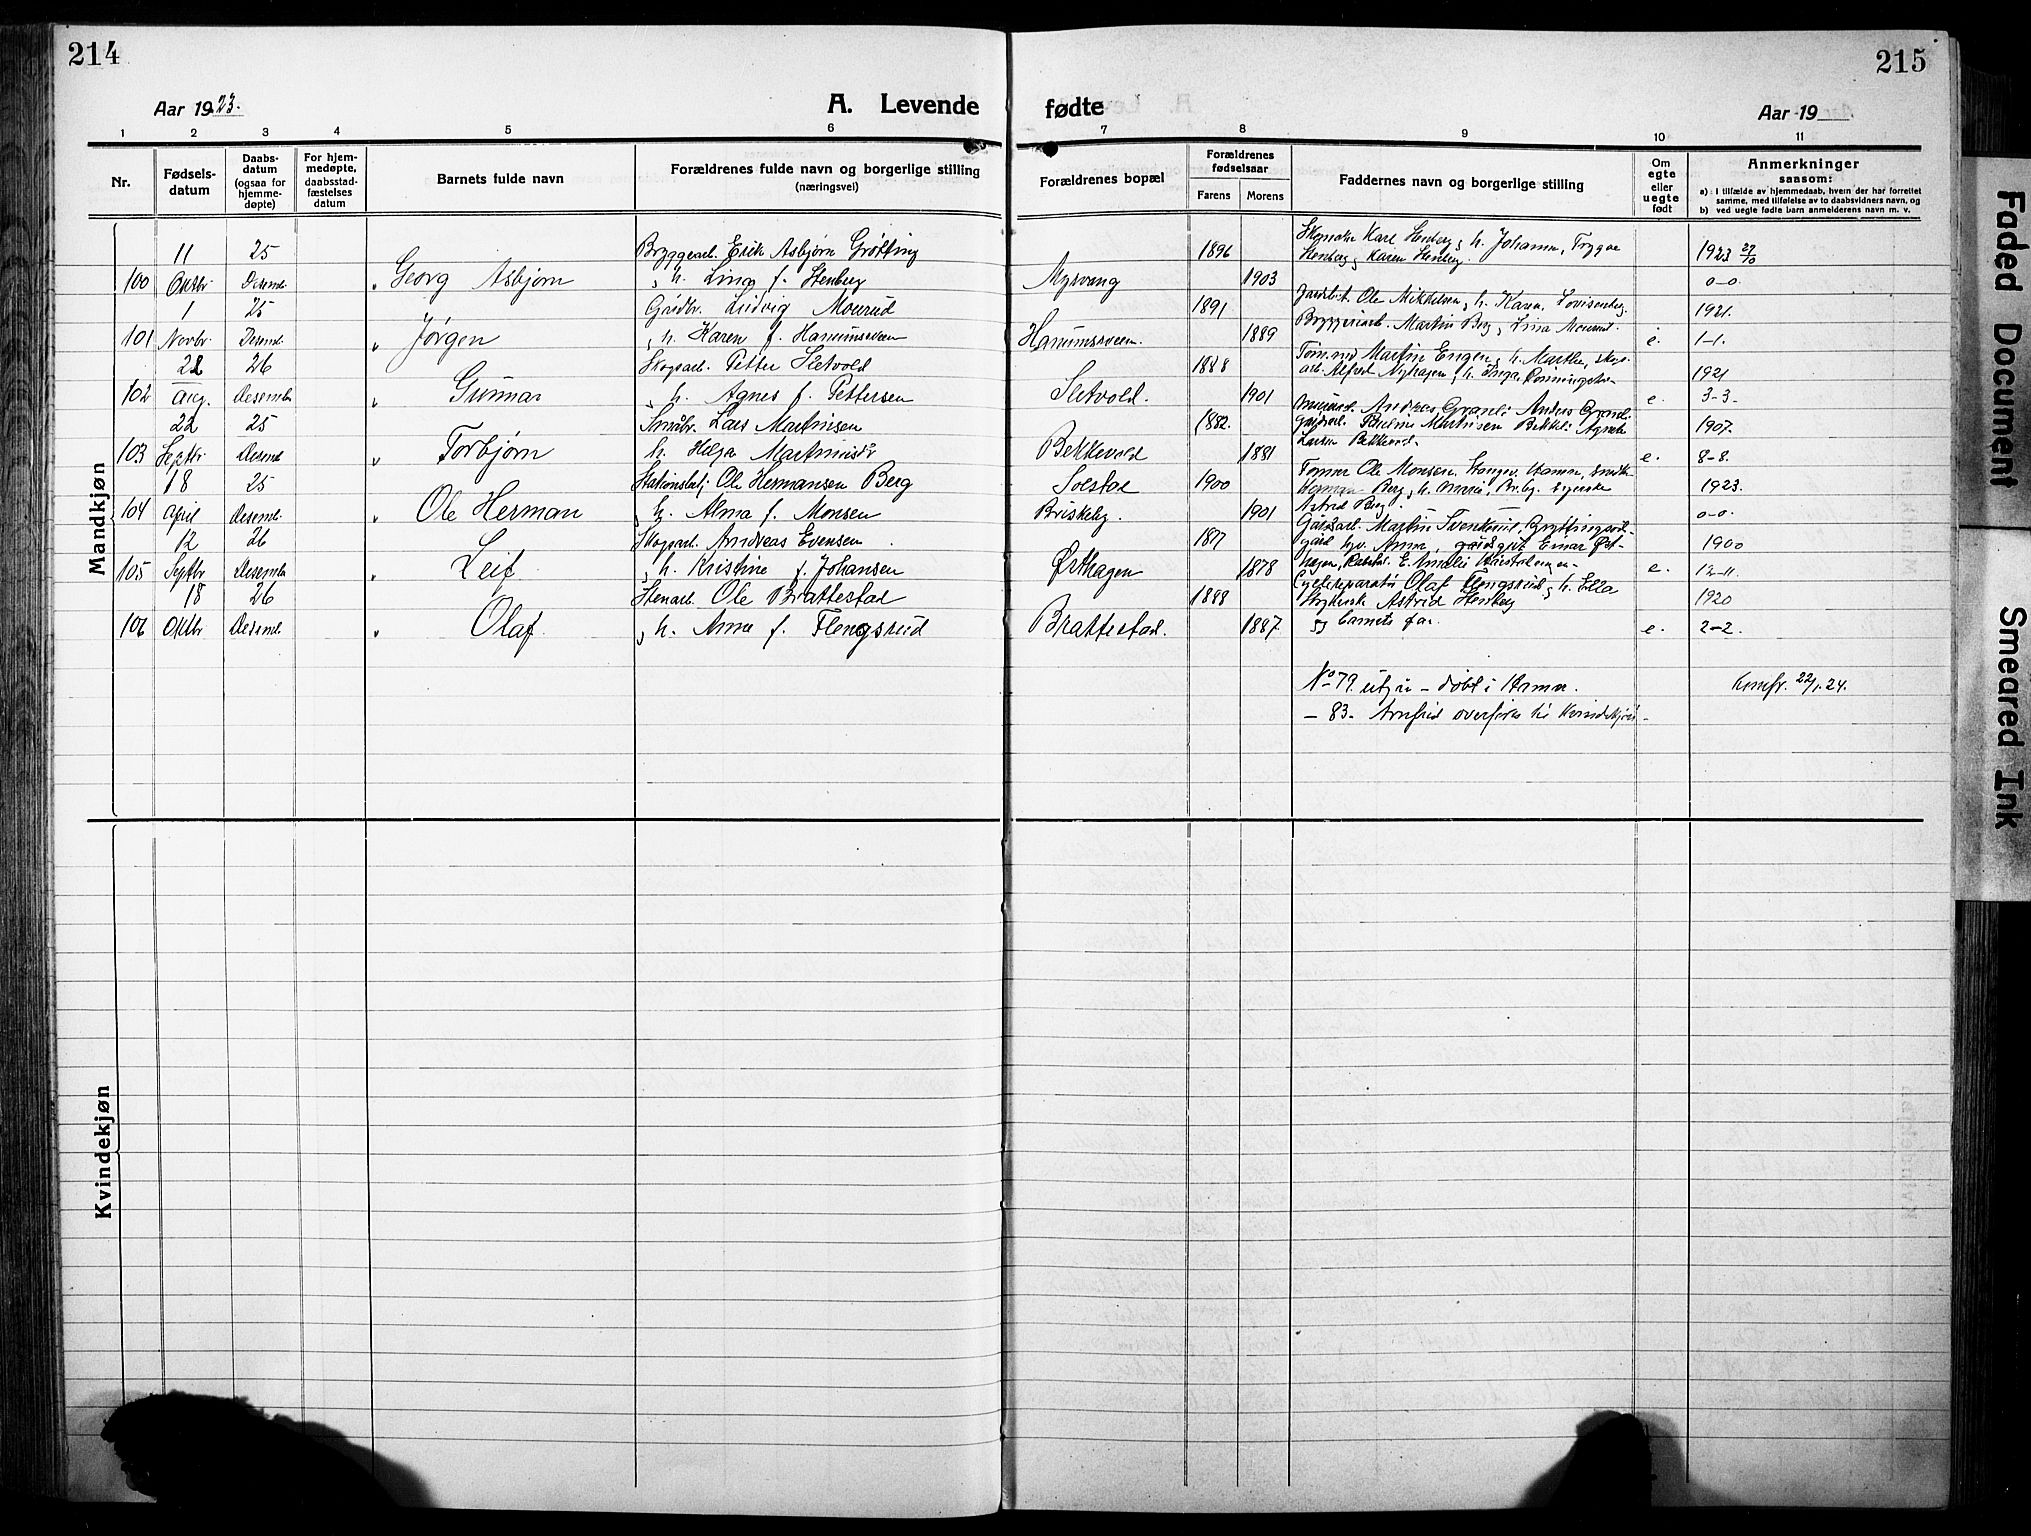 214
215
Aar 1923.
A. Levende
fødte
Aar 19
1 2 3 4 5 6 7 8 9 10 11
Nr.
Fødsels-
datum
Daabs-
datum
(ogsaa for
hjemme-
døpte)
For hjem-
medøpte,
daabsstad-
fæstelses
datum
Barnets fulde navn
Forældrenes fulde navn og borgerlige stilling
(næringsvei)
Forældrenes bopæl
Forældrenes
fødselsaar
Farens Morens
Faddernes navn og borgerlige stilling
Om
egte
eller
uegte
født
Anmerkninger
saasom:
a) i tilfælde av hjemmedaab, hvem der har forrettet
samme, med tilføielse av to daabsvidners navn, og
b) ved uegte fødte barn anmelderens navn m. v.
Mandkjøn
11 25 Byggearb. Erik Asbjørn Grøtting 1896 Karl Stenberg h. Johanne, Trygve 1923 27/10
100 Oktbr Desemb. " Georg Asbjørn h. Lina f. Stenberg Myrvang 1903 Stenberg Karen Stenberg. 0-0.
1 25 Gårdbr. Ludvig Mourud 1891 Ole Mikkelsen, h. Karen, Lovisenberg. 1921.
101 Novbr. Desemb. " Jørgen h. Karen f. Hanumsveen Hanumsveen. 1889 Martin Berg, Lina Mourud. e. 1-1.
22 26 Skogsarb. Petter Sletvold 1888 Martin Engen, h. Marthe, skogs- 1921
102 Aug. Desemb " Gunnar h. Agnes f. Pettersen Sletvold. 1901 arb. Alfred Nyhagen, h. Inga, e. 3-3.
22 25 Småbr. Lars Martinsen 1882. Andreas Granli Anders Granli 1907.
103 Septbr Desemb " Torbjørn h. Helga Martinusdr Bekkevold 1881 Martinsen Bekkeli Agnete Larsen Bekkevold. e. 8-8.
18 25 Stationsbetj. Ole Hermansen Berg Solstad 1900 Tømmer Ole Monsen, Stange, Hamar, 1923.
104 April Desemb. " Ole Herman h. Alma f. Monsen Briskeby. 1901 Herman Berg, h. Marie, Br.by. syerske Astrid Berg. 0-0.
12 26 Skogsarb. Andreas Evensen 1877 Gårdsarb. Martin Svenkerud, 1900
105 Septbr Desemb " Leif h. Kristine f. Johansen Østhagen 1878 Anna, gårdsgut Einar Øst- hagen, e. 12-11.
18 26 Stenarb. Ole Brattestad 1888 Cyclereparatør Olaf Flengsrud, h. Ella 1920
106 Oktbr Desemb. " Olaf h. Anna f. Flengsrud Brattestad. 1887 Astrid Stenberg og barnets far. e. 2-2.
No 79. utgår - døbt i Hamar. Konfr. 22/1.24.
- 83 - Arnfrid overføres til Kvindekjøn -
Kvindekjøn
Faded Document
Smeared Ink